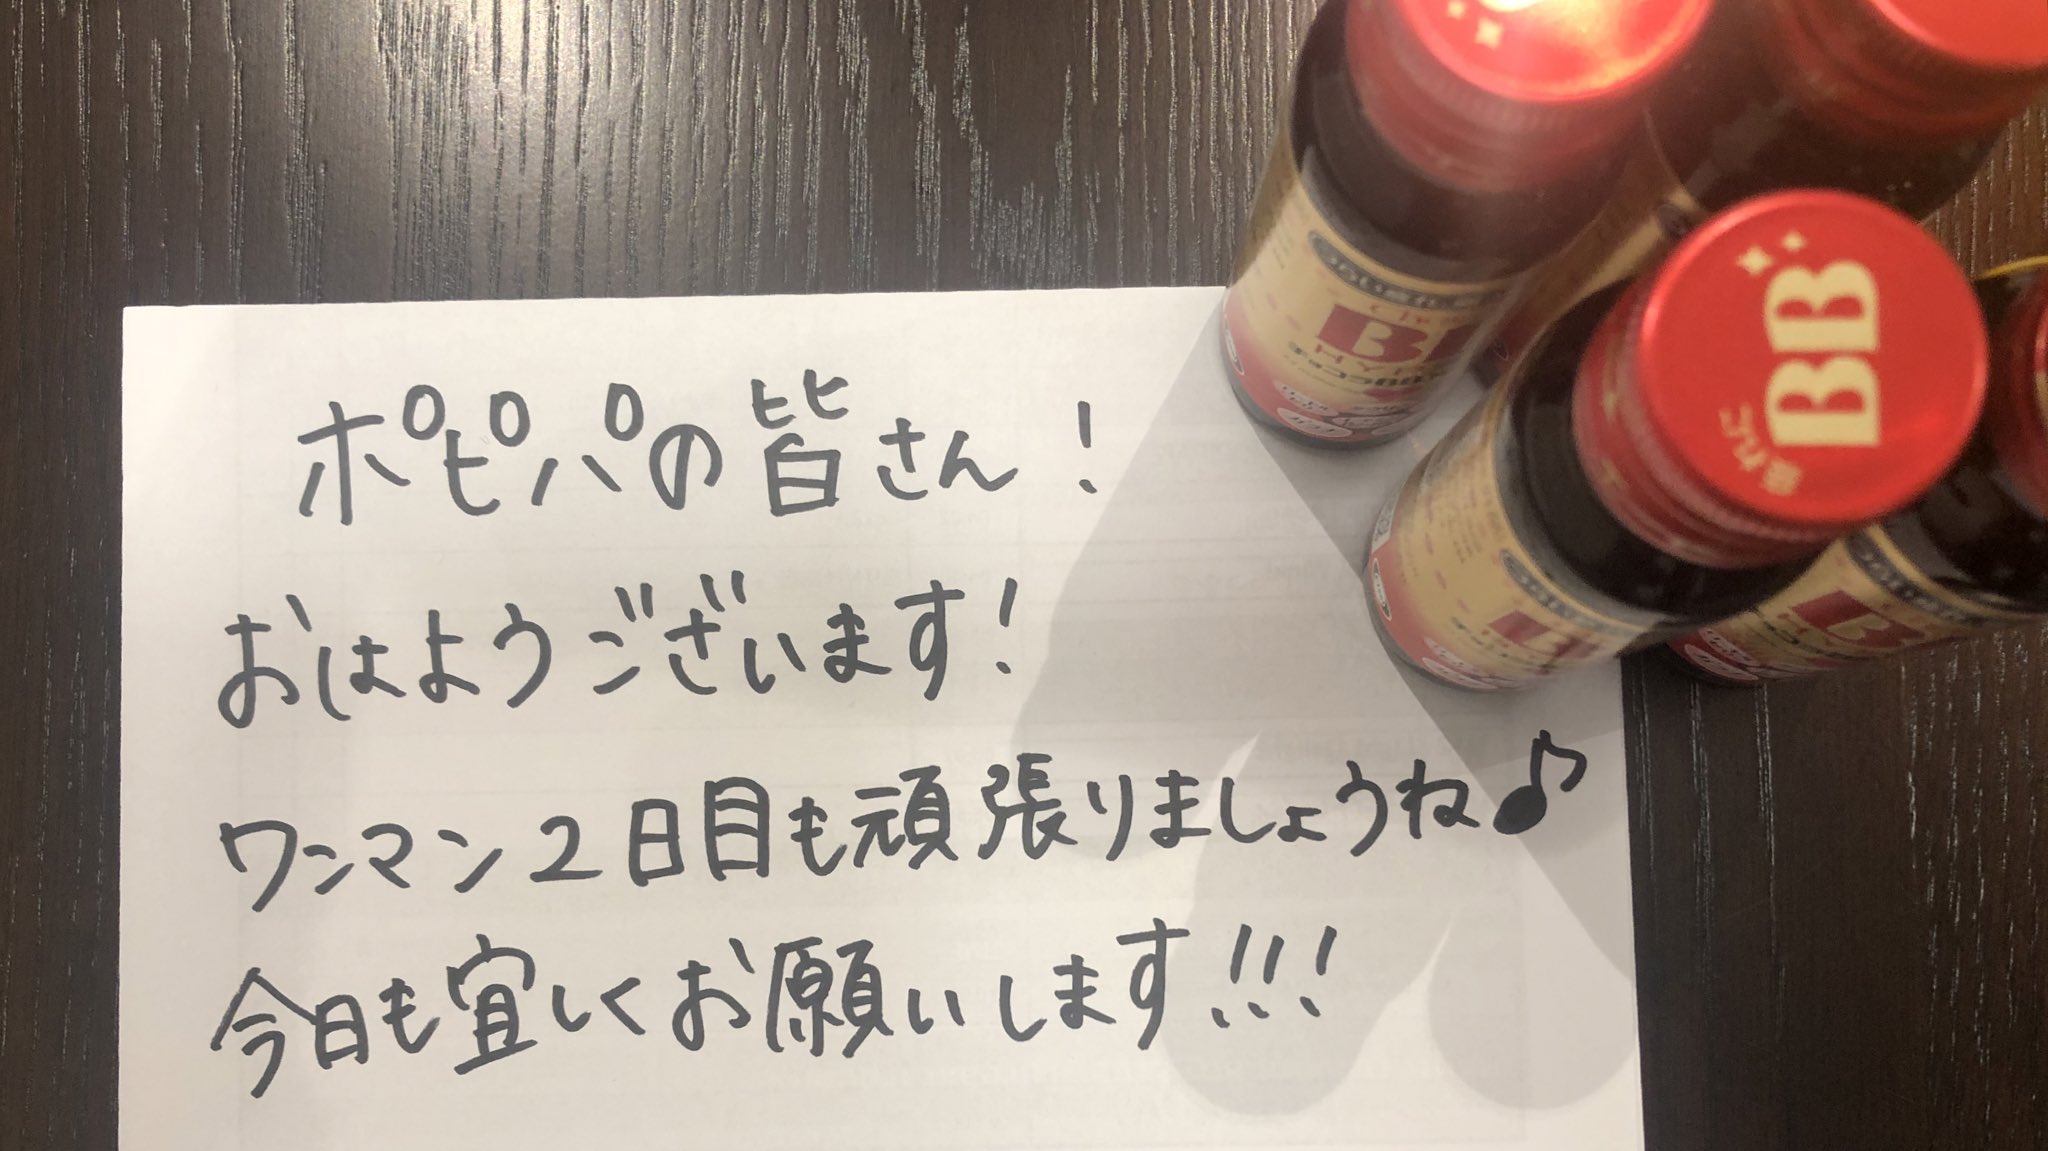 ポピパの皆さん！
おはようございます！
ワンマン２日目も頑張りましょうね♪
今日も宜しくお願いします！！！
BB
チョコラBB
BB